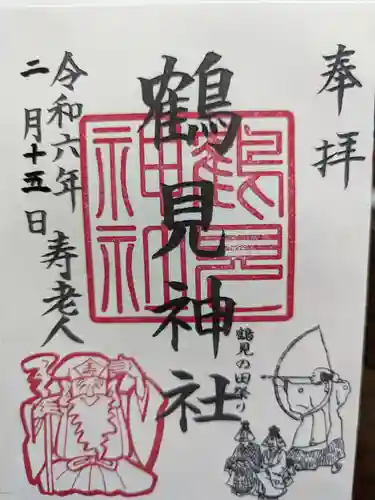 奉拝
鶴見神社
鶴見神社
鶴見の田祭り
寿老人
令和六年
二月十五日